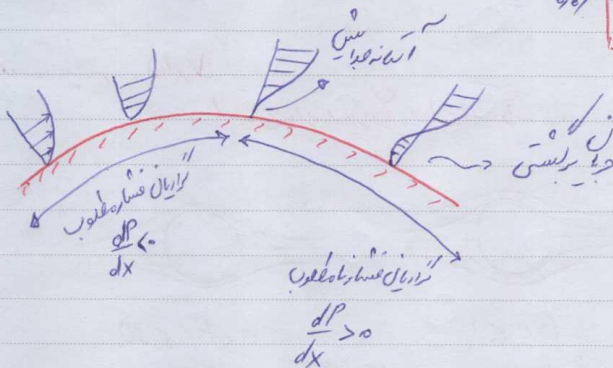 آستانه جدایش
جریان برگشتی
گرادیان فشار مطلوب
dP/dx < 0
گرادیان فشار نامطلوب
dP/dx > 0